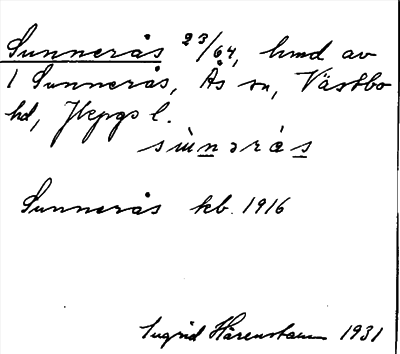 Sunnerås 23/64, hmd av
1 Sunnerås, Ås sn, Västbo
hd, Jkpgs l.
sùnərás
Sunnerås kb. 1916
Ingrid Härenstam 1931